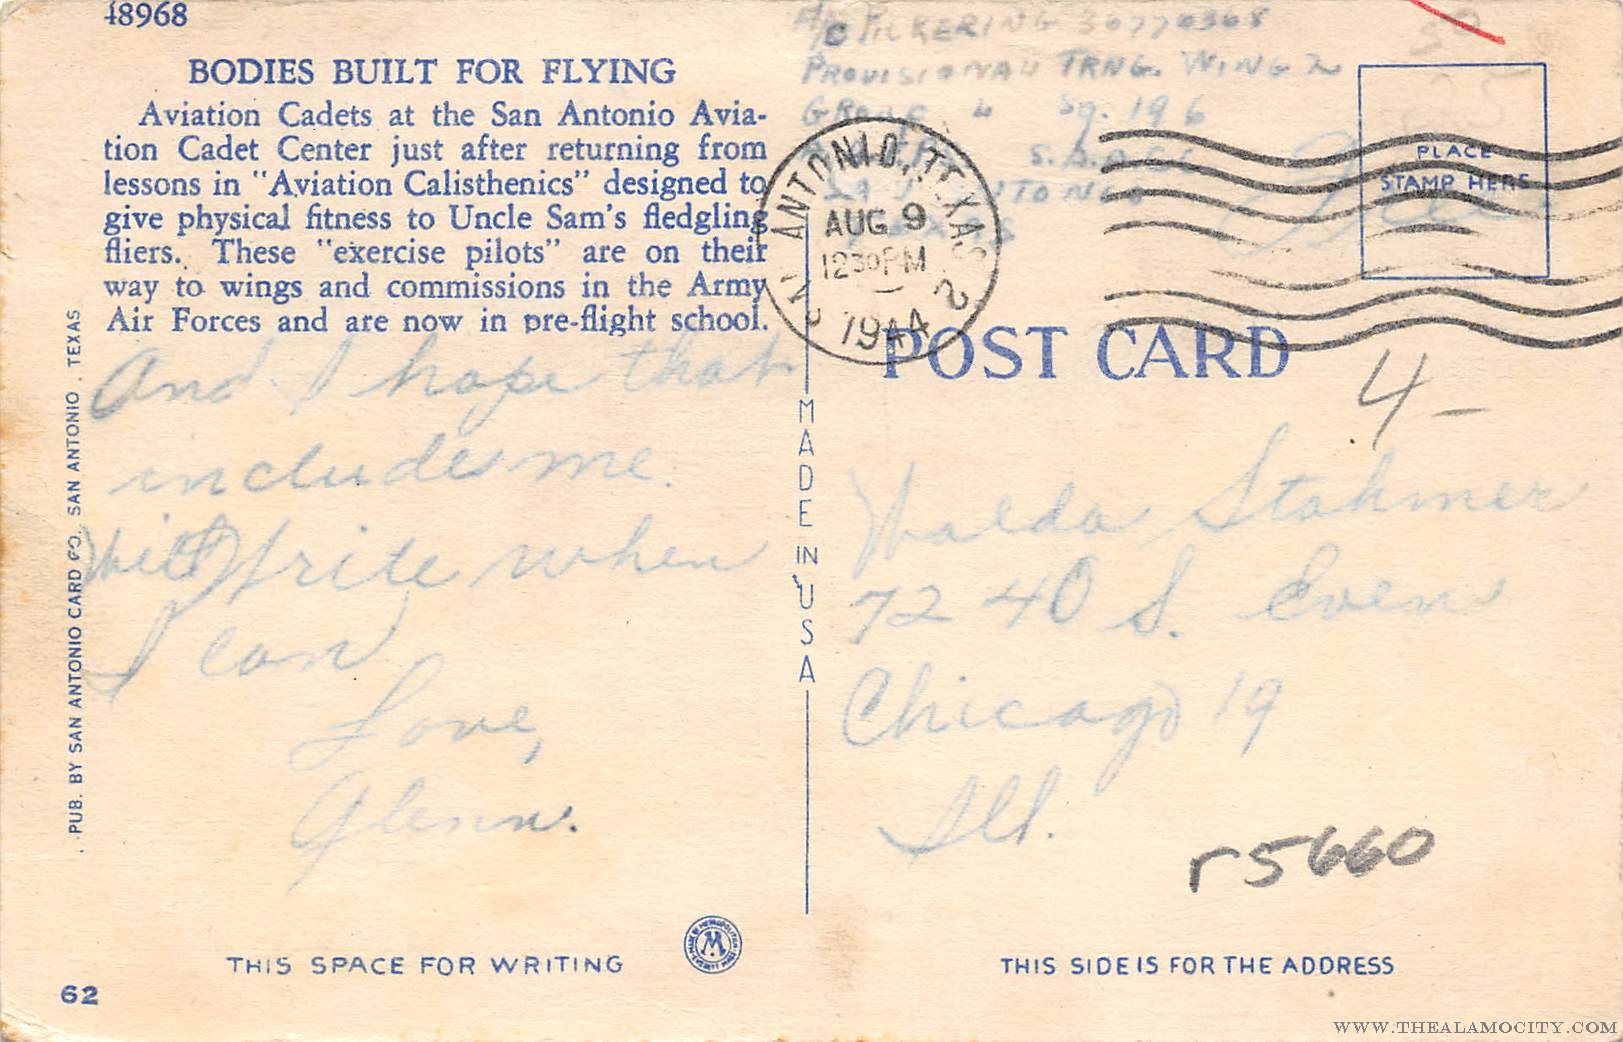 48968
BODIES BUILT FOR FLYING
Aviation Cadets at the San Antonio Avia-
tion Cadet Center just after returning from
lessons in "Aviation Calisthenics" designed to
give physical fitness to Uncle Sam's fledgling
fliers. These "exercise pilots" are on their
way to wings and commissions in the Army
Air Forces and are now in pre-flight school.
And I hope that
includes me.
Will Write when
I can
Love,
Glenn.
THIS SPACE FOR WRITING
62
PUB. BY SAN ANTONIO CARD CO. SAN ANTONIO, TEXAS
MADE IN USA
A/C PICKERING 36770368
PROVISIONAL TRNG. WING 2
GROUP 4 Sq. 196
S.A.A.C.C.
SAN ANTONIO
TEXAS
Free
SAN ANTONIO, TEXAS
AUG 9
12 30 PM
1944
2
PLACE
STAMP HERE
POST CARD
4-
Walda Stahmer
7240 S.
Chicago 19
Ill.
r5660
THIS SIDE IS FOR THE ADDRESS
WWW.THEALAMOCITY.COM